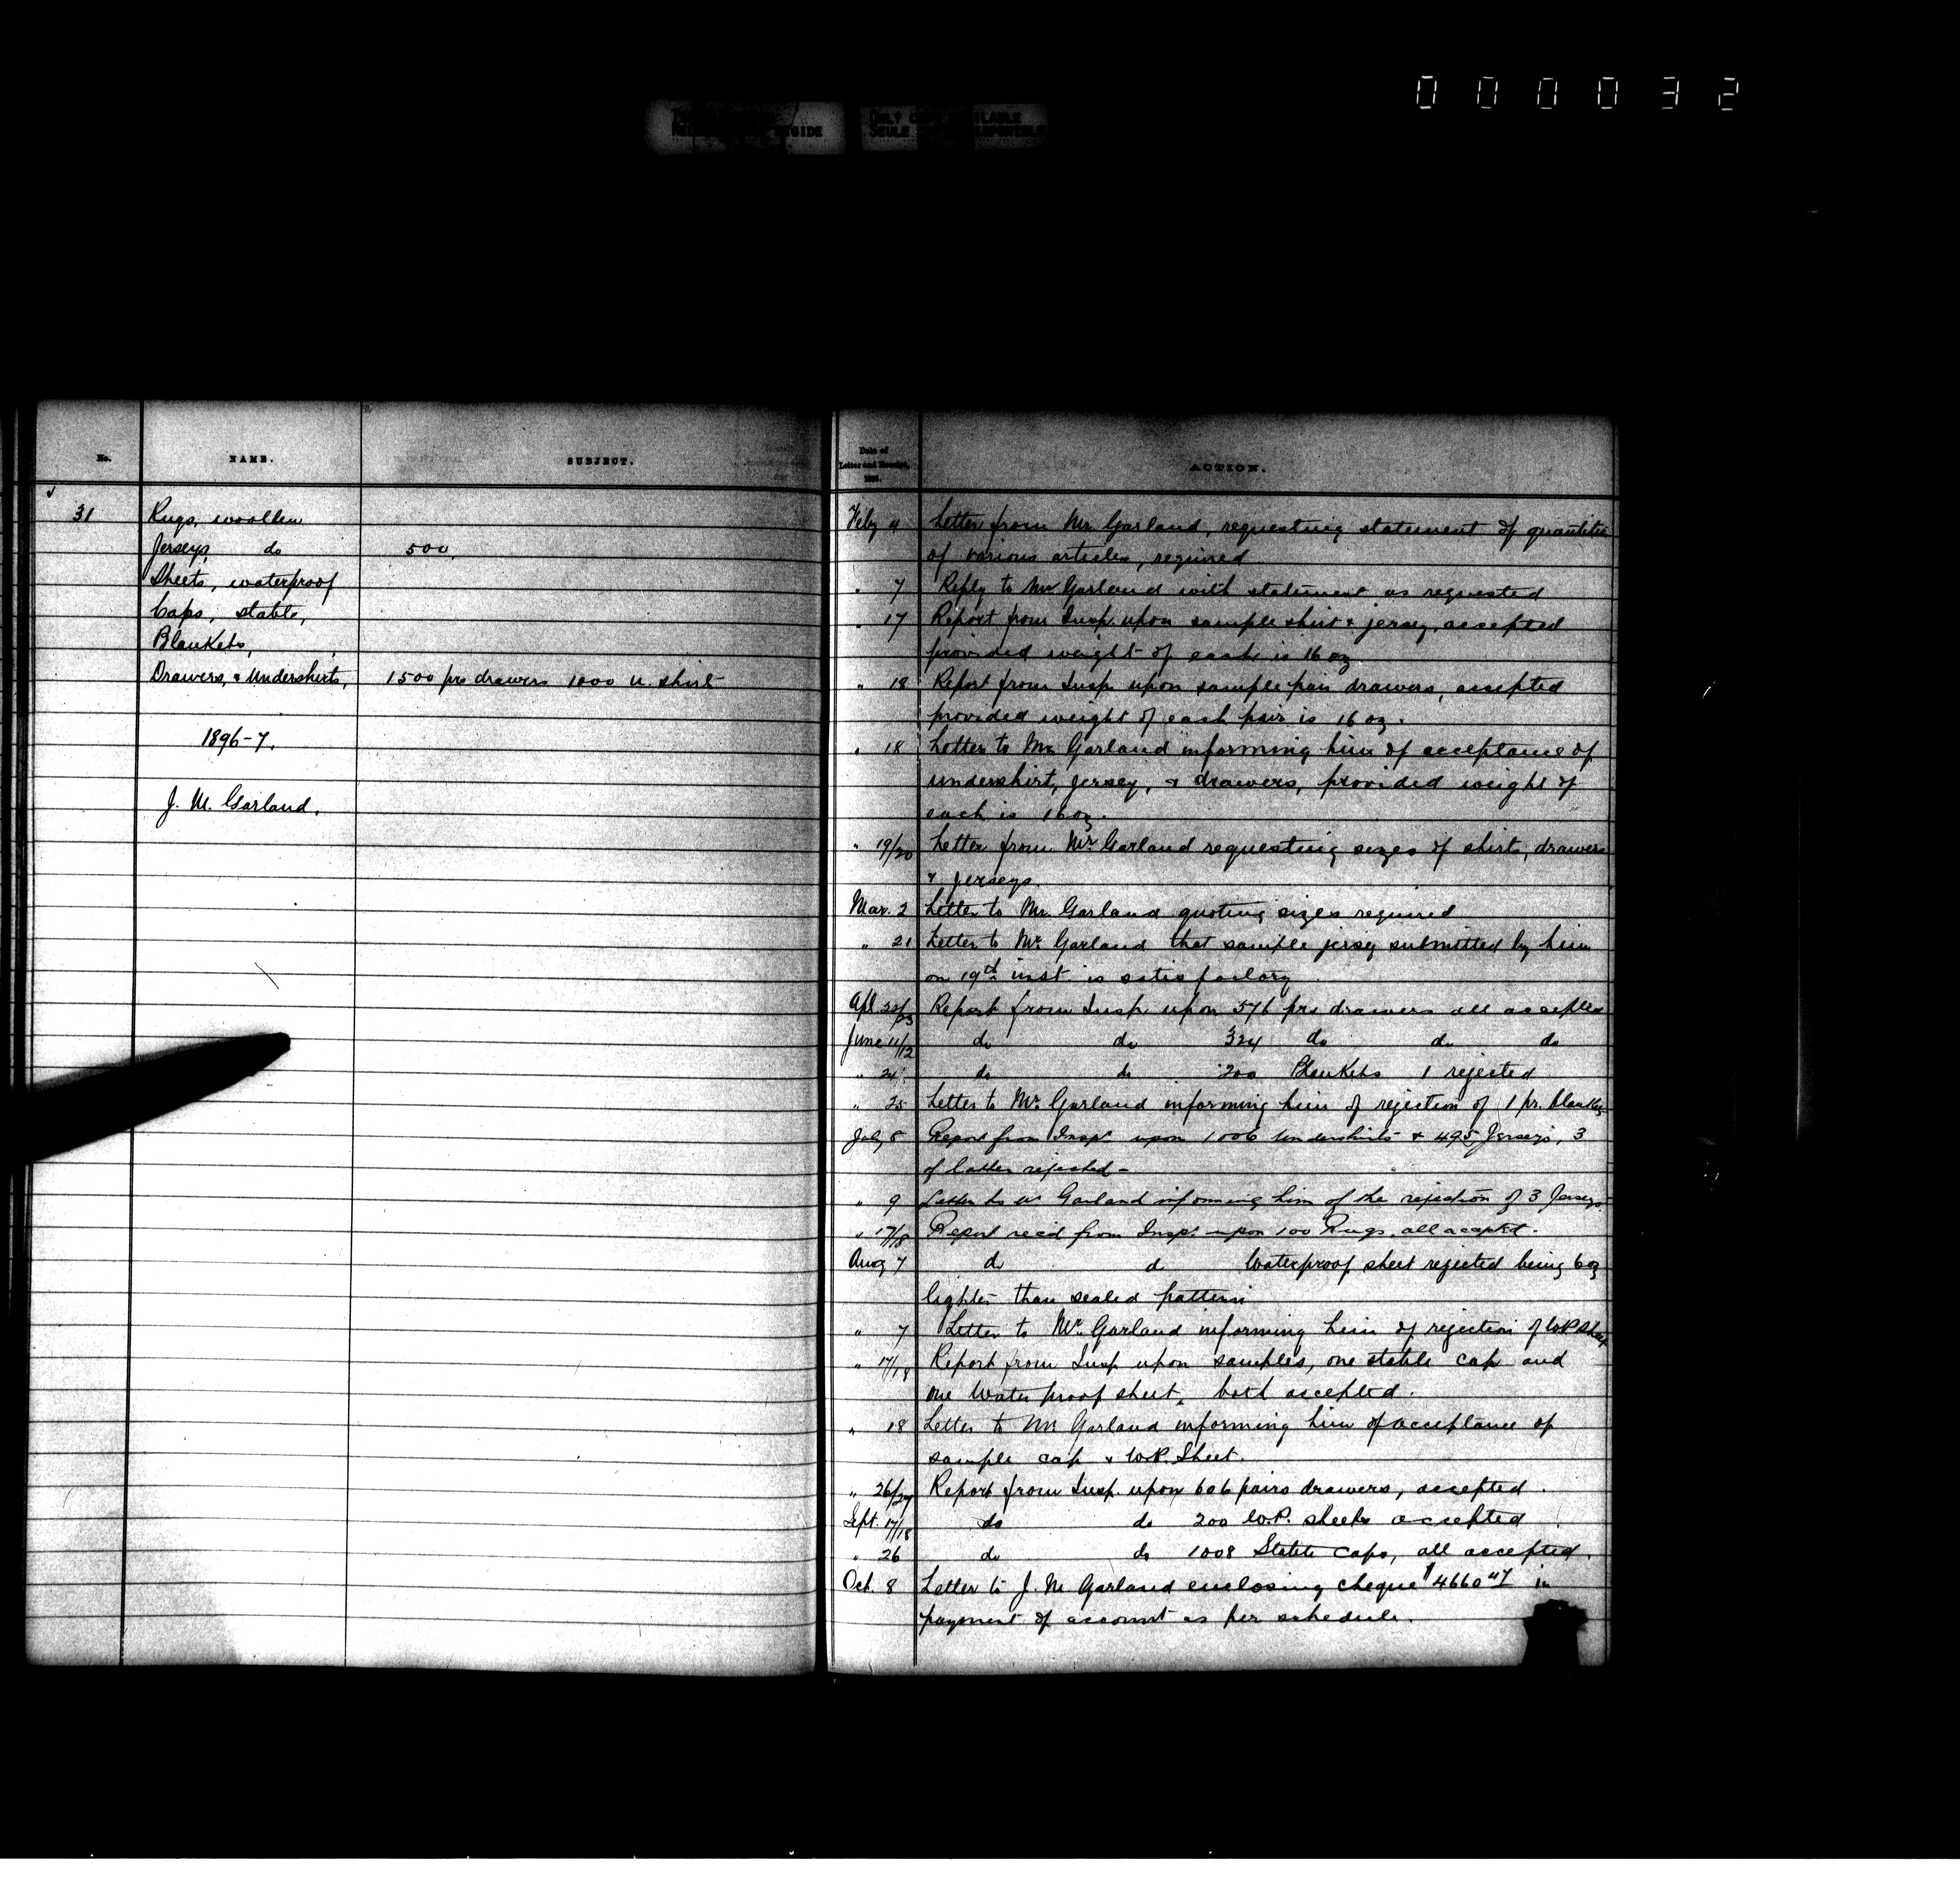 000032
No. NAME. SUBJECT.
31 Rugs, woollen
Jerseys, do 500.
Sheets, waterproof
Caps, stable,
Blankets,
Drawers, & Undershirts, 1500 prs drawers 1000 u. shirts
1896-7.
J. M. Garland.
Date of Letter and Receipt, ACTION.
Feby 4 Letter from Mr. Garland, requesting statement of quantities
of various articles, required
" 7 Reply to Mr Garland with statement as requested
" 17 Report from Insp. upon sample shirt & jersey, accepted
provided weight of each is 16 oz
" 18 Report from Insp. upon sample pair drawers, accepted
provided weight of each pair is 16 oz.
" 18 Letter to Mr Garland informing him of acceptance of
undershirt, jersey, & drawers, provided weight of
each is 16 oz.
" 19/20 Letter from Mr. Garland requesting sizes of shirts, drawers
& jerseys.
Mar. 2 Letter to Mr. Garland quoting sizes required
" 21 Letter to Mr. Garland that sample jersey submitted by him
on 19th inst. is satisfactory
Apl 22/23 Report from Insp. upon 576 prs drawers all accepted
June 11/12 do do 324 do do do
" 24 do do 200 Blankets 1 rejected
" 25 Letter to Mr. Garland informing him of rejection of 1 pr. blankets
July 8 Report from Inspr upon 1006 Undershirts & 495 Jerseys, 3
of latter rejected -
" 9 Letter to Mr Garland informing him of the rejection of 3 Jerseys
" 17/18 Report rec'd from Inspr upon 100 Rugs, all accepted.
Aug 7 do do Waterproof sheet rejected being 6 oz
lighter than sealed pattern
" 7 Letter to Mr. Garland informing him of rejection of W.P. Sheet
" 17/18 Report from Insp upon samples, one stable cap and
one Water proof sheet, both accepted.
" 18 Letter to Mr Garland informing him of acceptance of
sample cap & W.P. Sheet.
" 26/27 Report from Insp. upon 606 pairs drawers, accepted.
Sept. 17/18 do do 200 W.P. sheets accepted
" 26 do do 1008 Stable caps, all accepted.
Oct. 8 Letter to J. M Garland enclosing cheque $4660 47 in
payment of account as per schedule.